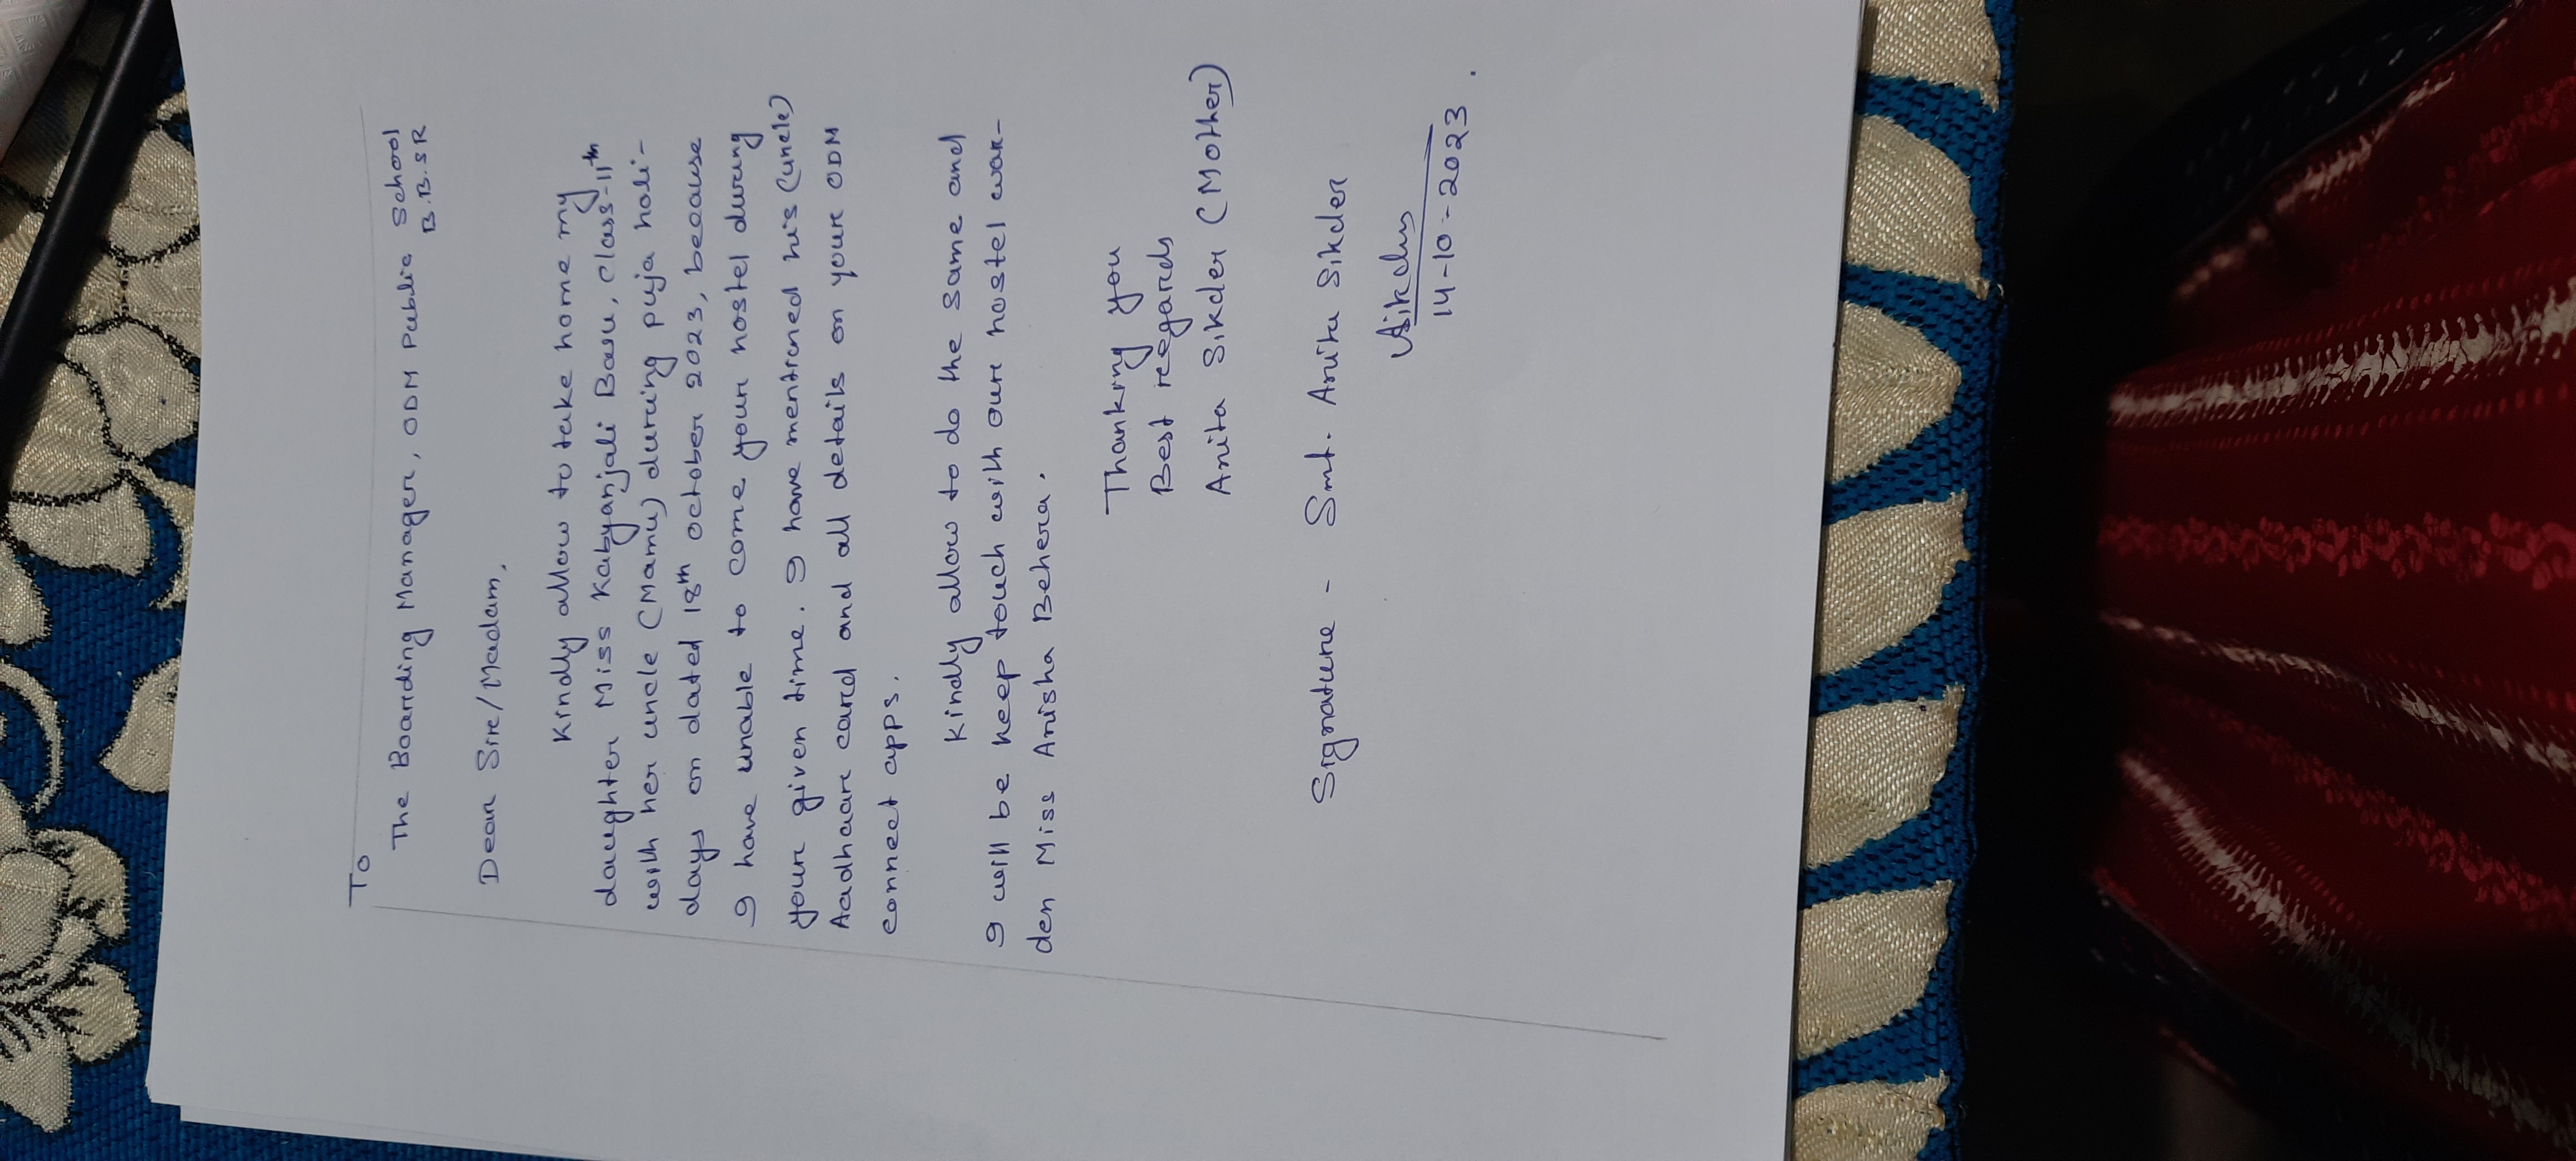 To
The Boarding Manager, ODM Public School
B.B.SR
Dear Sir/Madam,
Kindly allow to take home my
daughter Miss Kabyanjali Basu, class-11th
with her uncle (Mamu) during puja holi-
days on dated 18th october 2023, because
I have unable to come your hostel during
your given time. I have mentioned his (uncle)
Aadhaar card and all details on your ODM
connect apps.
Kindly allow to do the same and
I will be keep touch with our hostel war-
den Miss Anisha Behera.
Thanking you
Best regards
Anita Sikder (Mother)
Signature - Smt. Anita Sikder
ASikder
14-10-2023.